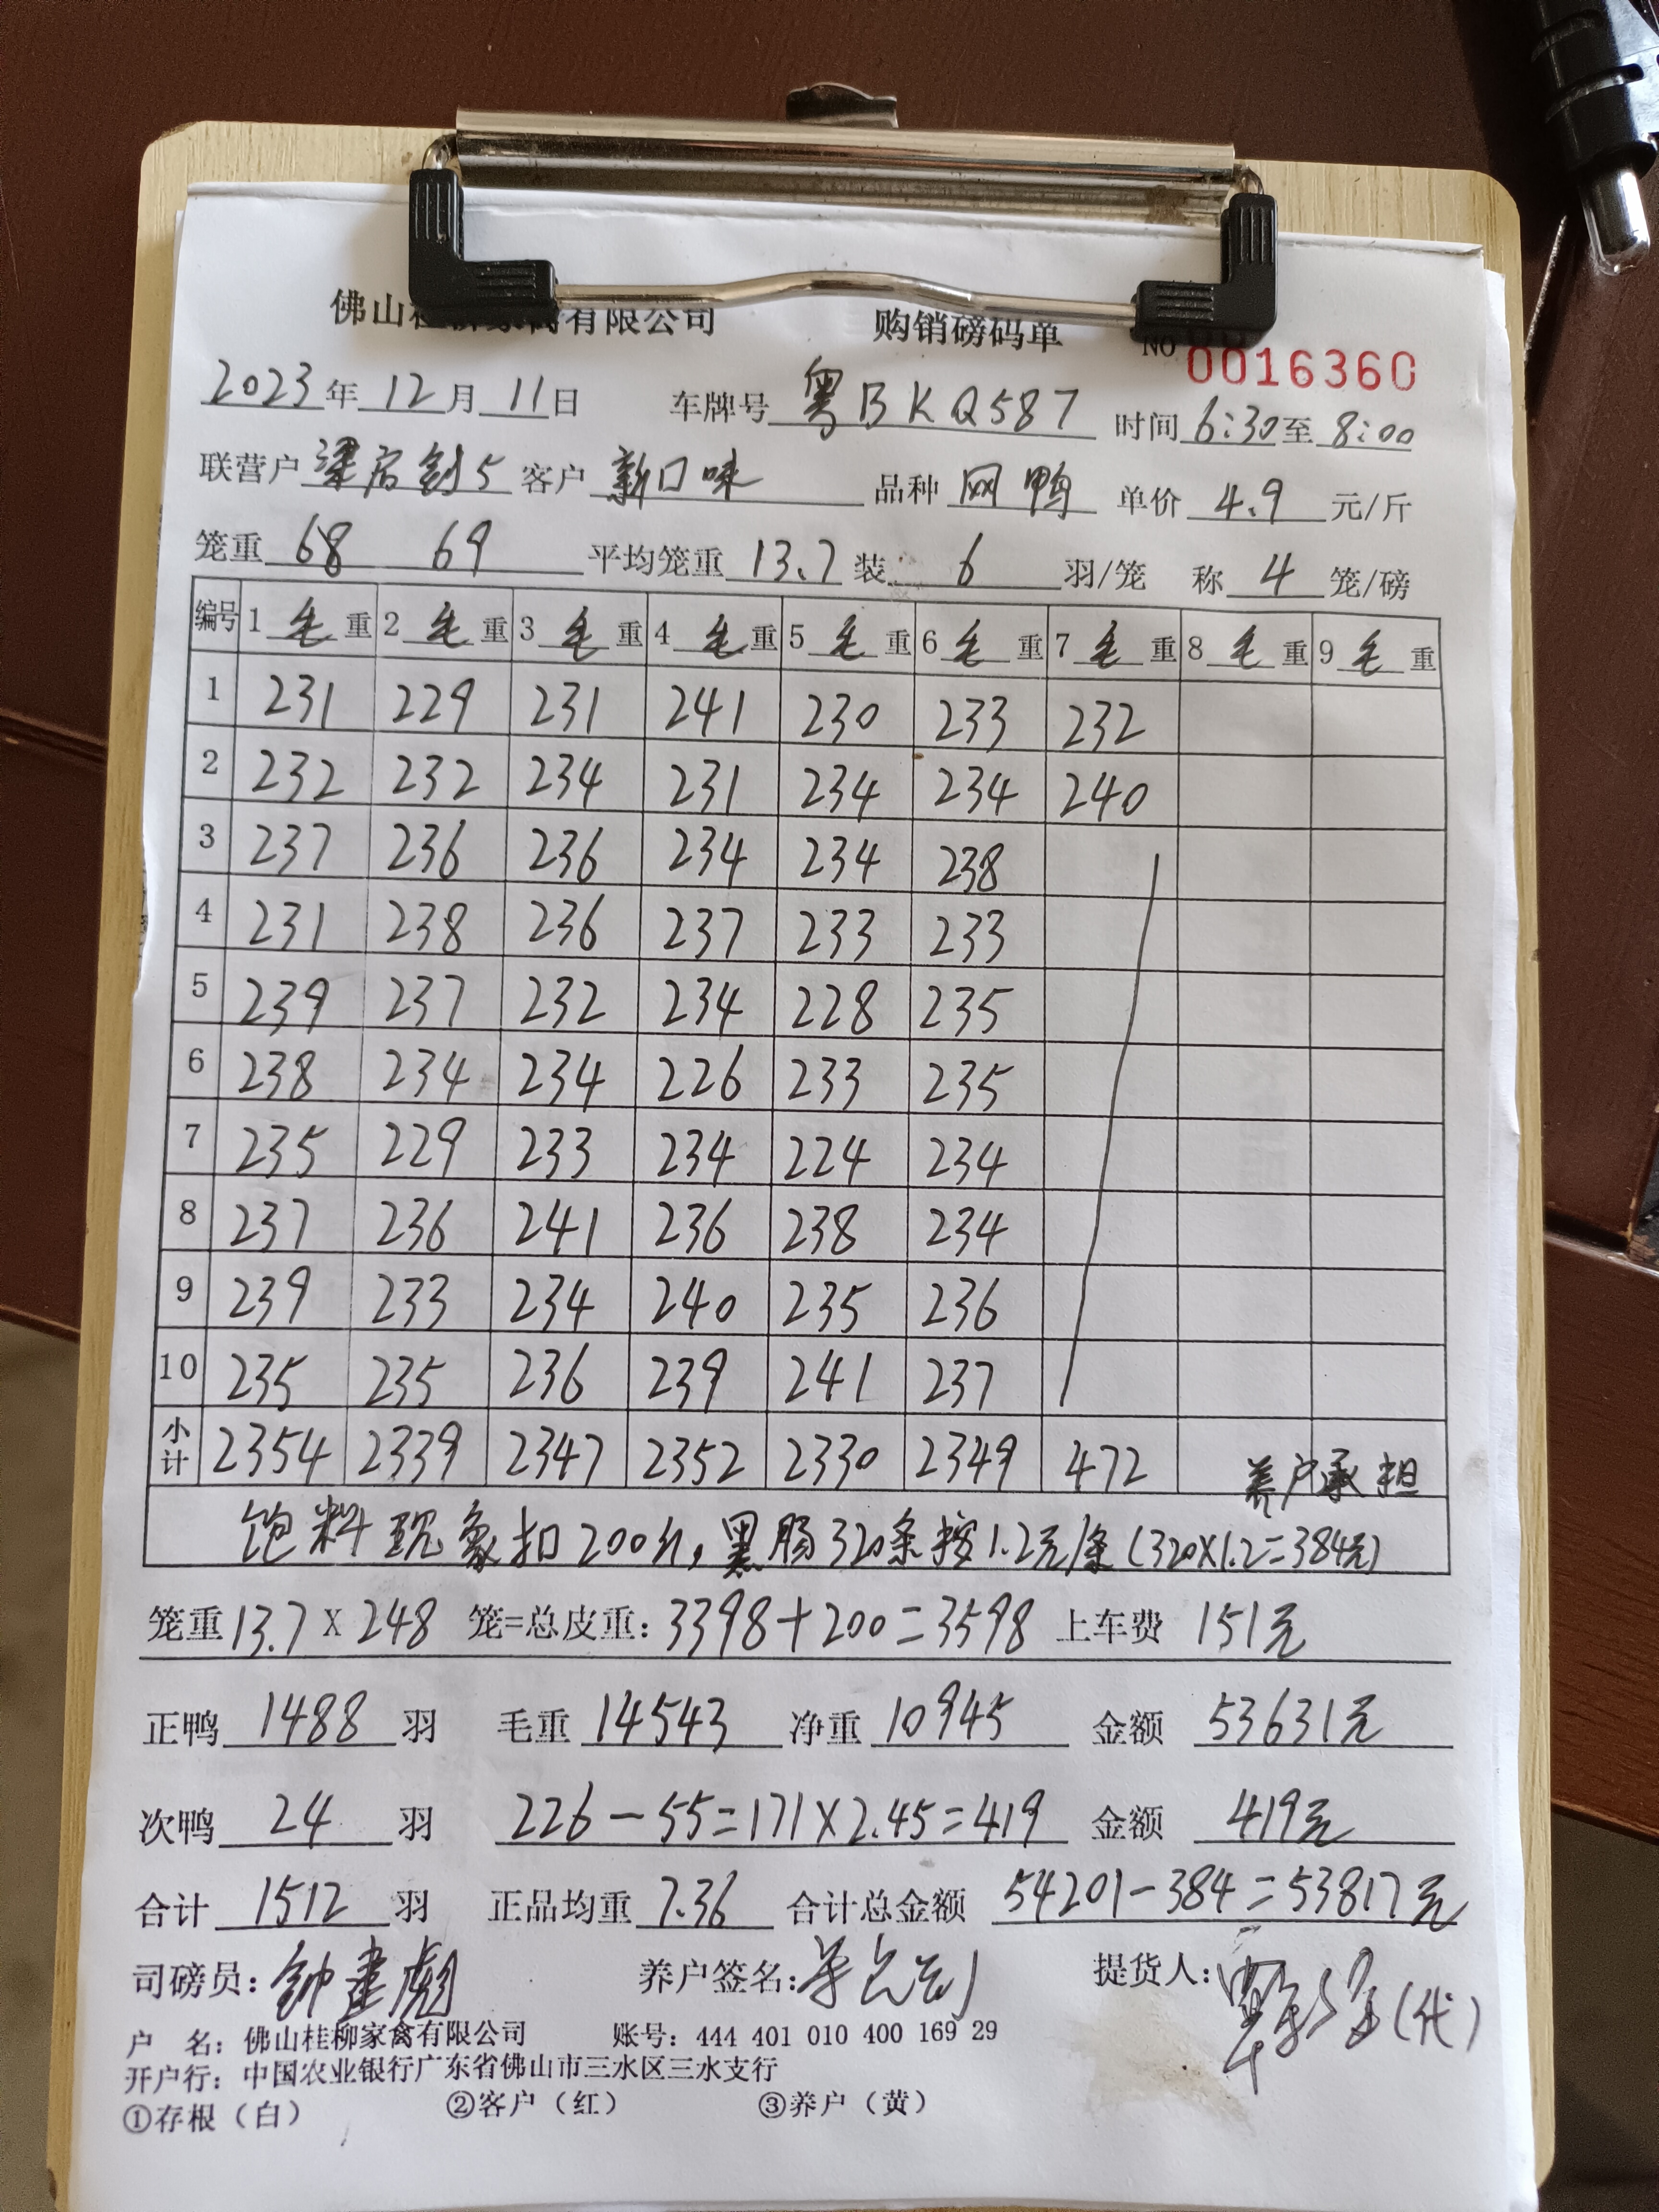 佛山桂柳家禽有限公司 购销磅码单 NO 0016360
2023年12月11日 车牌号 粤BKQ587 时间6:30至8:00
联营户 梁启创5 客户 新口味 品种 网鸭 单价 4.9 元/斤
笼重 68 69 平均笼重 13.7 装 6 羽/笼 称 4 笼/磅
编号 1 毛 重 2 毛 重 3 毛 重 4 毛 重 5 毛 重 6 毛 重 7 毛 重 8 毛 重 9 毛 重
1 231 229 231 241 230 233 232
2 232 232 234 231 234 234 240
3 237 236 236 234 234 238
4 231 238 236 237 233 233
5 239 237 232 234 228 235
6 238 234 234 226 233 235
7 235 229 233 234 224 234
8 237 236 241 236 238 234
9 239 233 234 240 235 236
10 235 235 236 239 241 237
小计 2354 2339 2347 2352 2330 2349 472
养户承担
饱料现象扣200斤,黑肠320条按1.2元/条(320X1.2=384元)
笼重13.7 X 248 笼=总皮重: 3398+200=3598 上车费 151元
正鸭 1488 羽 毛重 14543 净重 10945 金额 53631元
次鸭 24 羽 226-55=171X2.45=419 金额 419元
合计 1512 羽 正品均重 7.36 合计总金额 54201-384=53817元
司磅员: 钟建彪 养户签名: 提货人: (代)
户 名: 佛山桂柳家禽有限公司 账号: 444 401 010 400 169 29
开户行: 中国农业银行广东省佛山市三水区三水支行
①存根(白) ②客户(红) ③养户(黄)